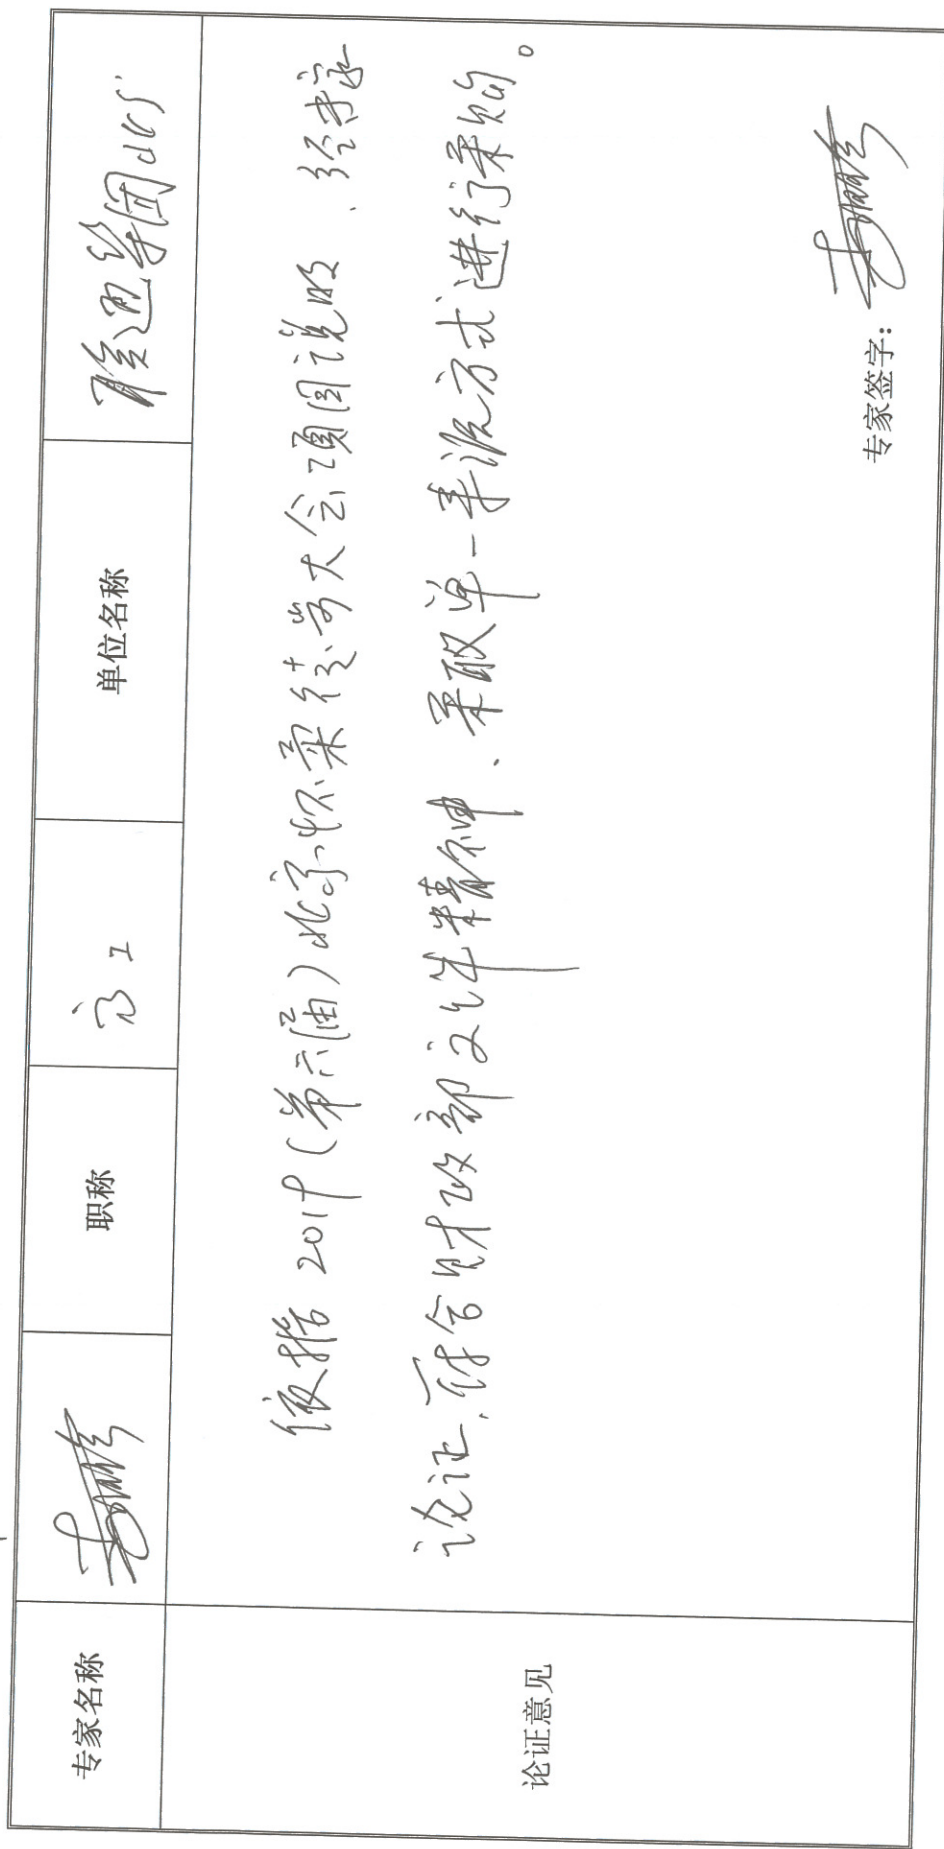 专家名称
职称
高工
单位名称
论证意见
依据2019(第六届)北京怀柔徒步大会项目说明、经专家
论证,符合财政部文件精神、采取单一来源方式进行采购。
专家签字: